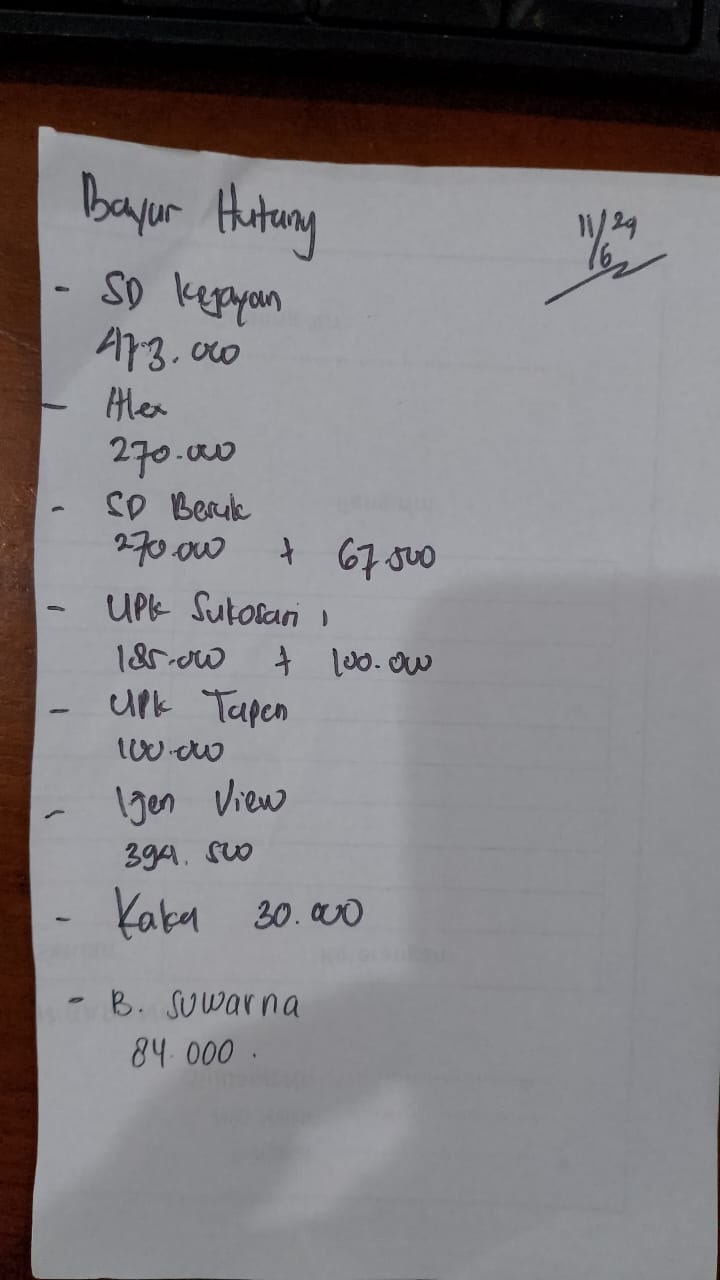 Bayar Hutang
11/24
6
- SD Kejayan
473.000
- Alex
270.000
- SD Beruk
270.000 + 67.500
- UPK Sukosari,
185.000 + 100.000
- UPK Tapen
100.000
- Ijen View
394.500
- Kaka 30.000
- B. Suwarna
84.000.